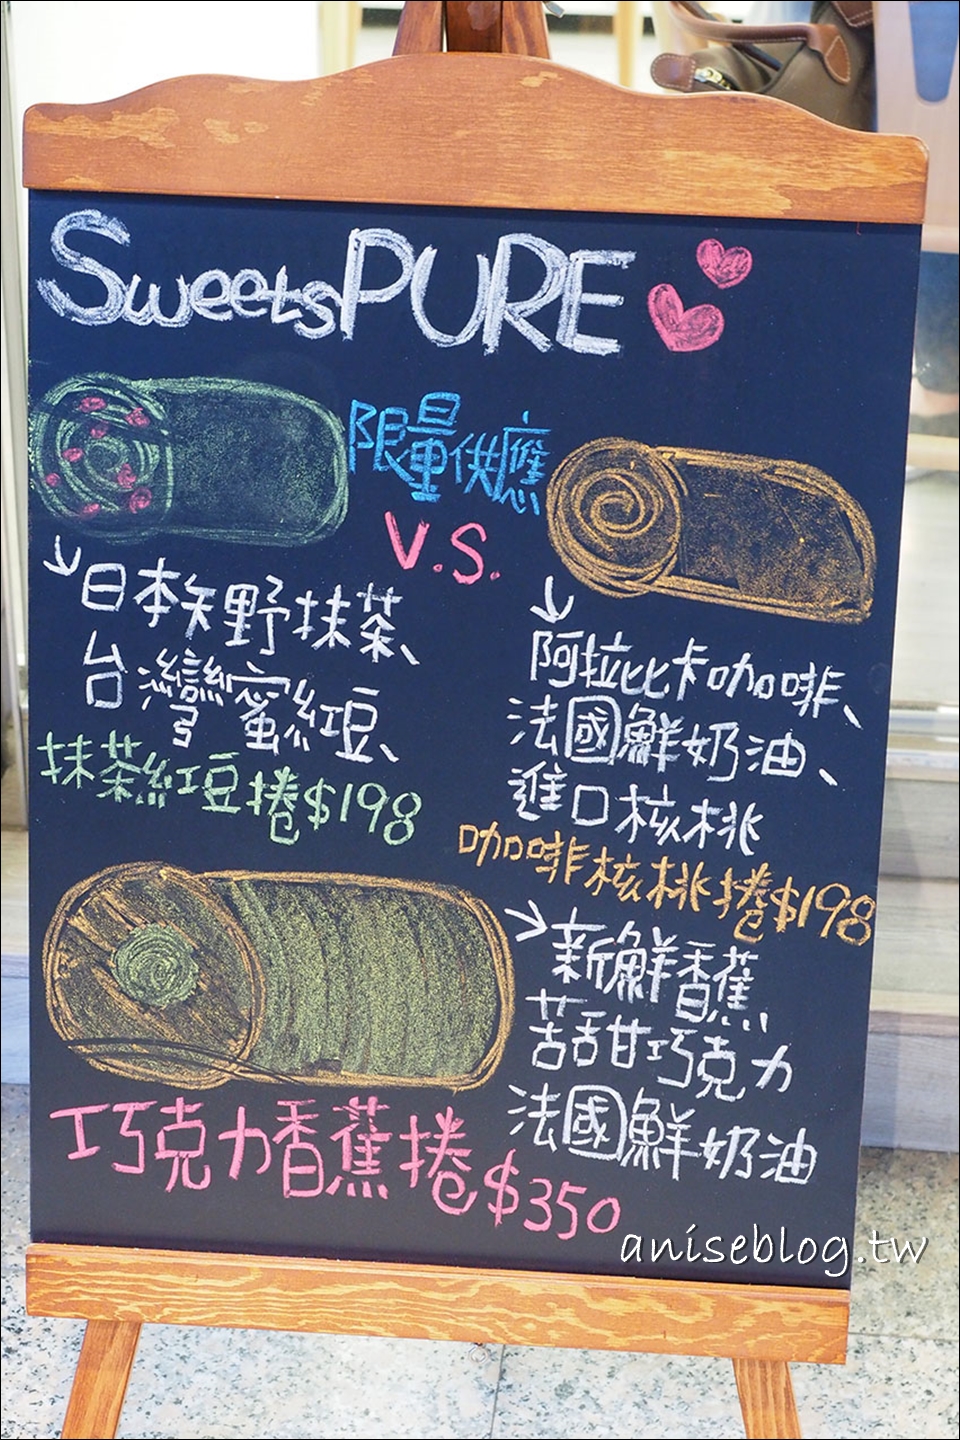 SweetsPURE
限量供應
V.S.
日本矢野抹茶、
台灣蜜紅豆、
抹茶紅豆捲$198
阿拉比卡咖啡、
法國鮮奶油、
進口核桃
咖啡核桃捲$198
新鮮香蕉、
苦甜甘巧克力
法國鮮奶油
巧克力香蕉捲$350
aniseblog.tw